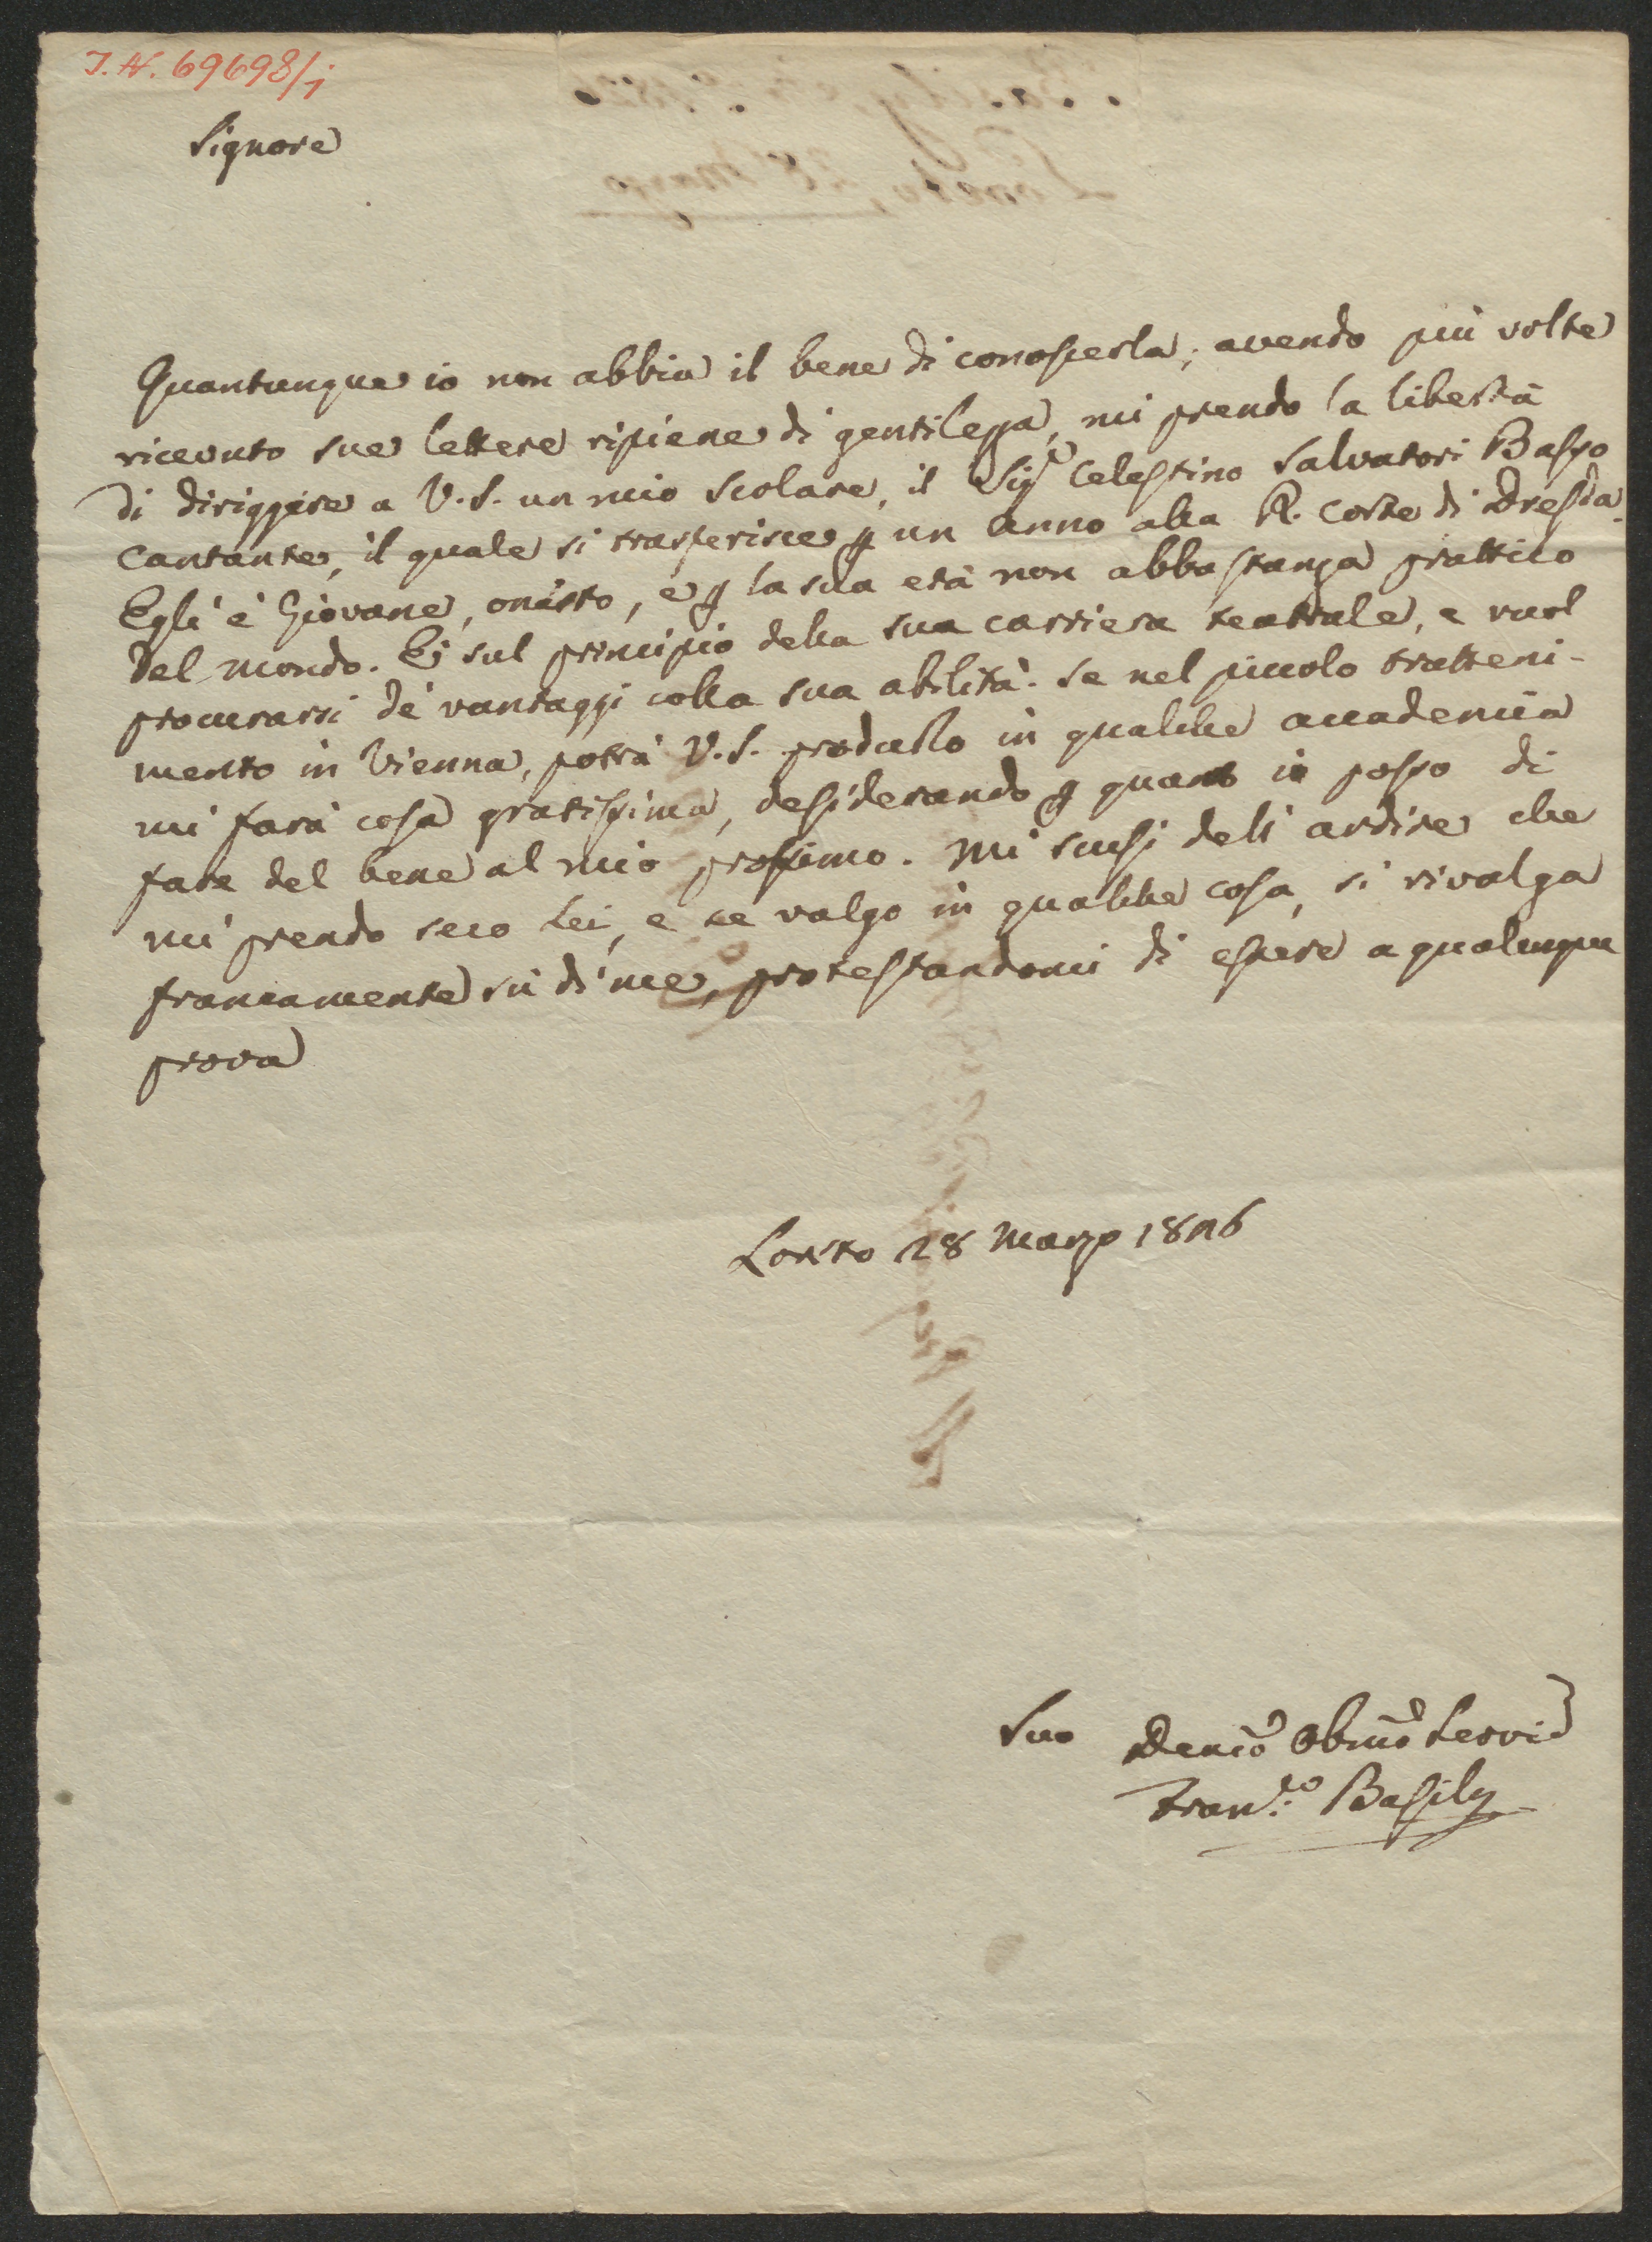 I.N. 69698/1
Signore
Quantunque io non abbia il bene di conoscerla, avendo più volte
ricevuto sue lettere ripiene di gentilezza, mi prendo la libertà
di diriggere a V.S. un mio scolare, il Sigr Celestino Salvatori Basso
Cantante, il quale si trasferisce p un anno alla R. Corte di Dresda.
Egli è Giovane, onesto, e p la sua età non abbastanza prattico
del mondo. Ei sul principio della sua carriera teatrale, e vuol
procurarsi de' vantaggi colla sua abilità. Se nel piccolo tratteni-
mento in Vienna, potrà V.S. produrlo in qualche accademia
mi farà cosa gratissima, desiderando p quanto io posso di
fare del bene al mio prossimo. Mi scusi dell'ardire che
mi prendo seco Lei, e se valgo in qualche cosa, si rivalga
francamente su di me, protestandomi di essere a qualunque
prova
Loreto 28 Marzo 1826
Suo Devmo Obmo Servid
Franco Basily